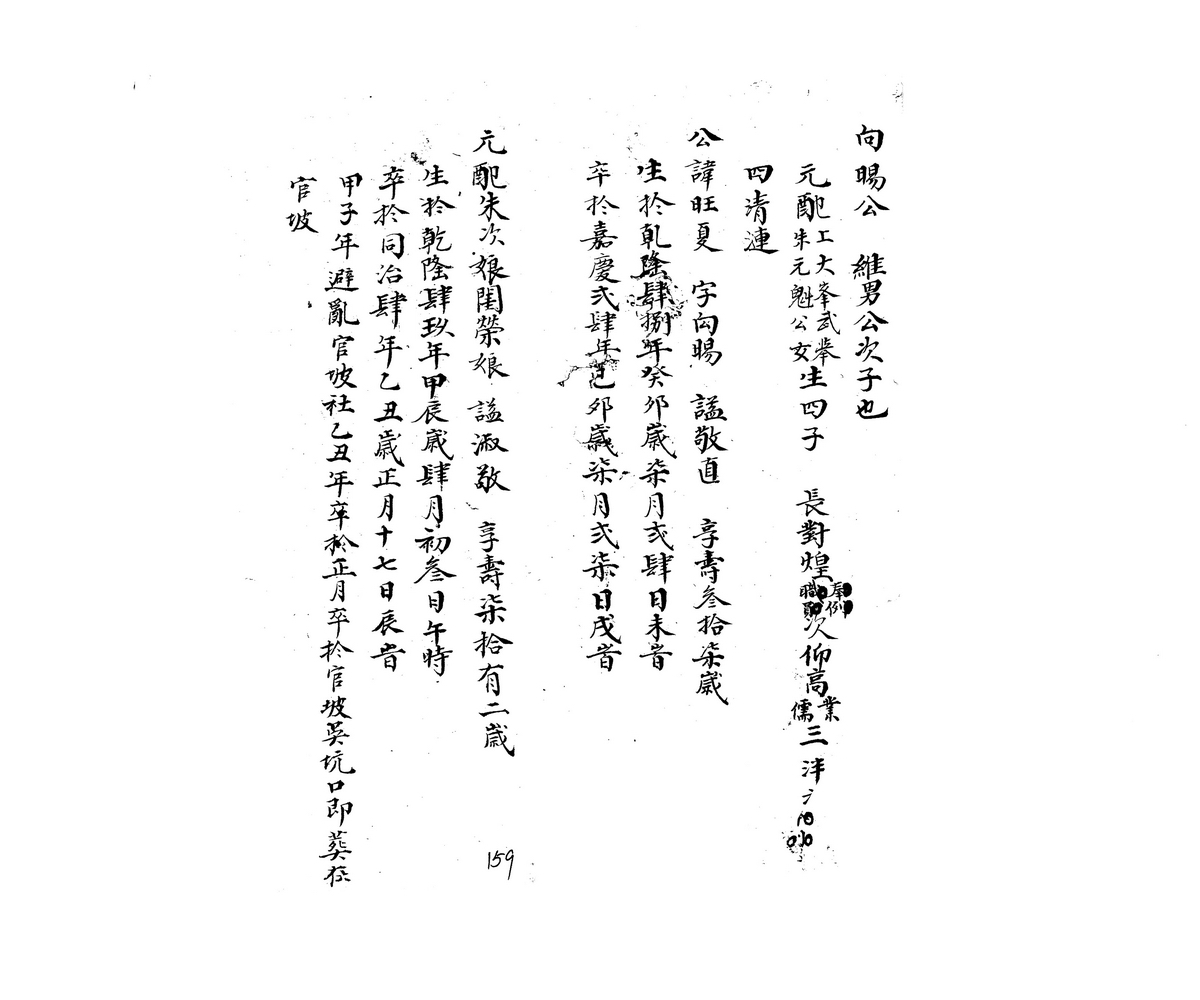 向暘公　維男公次子也
元配工大峯武舉朱元魁公女生四子　長對煌奉例職員次仰高業儒三泮
四清連
公諱旺夏　字向暘　諡敬直　享壽叁拾柒歲
生扵乹隆肆捌年癸夘歲柒月弍肆日未旹
卒扵嘉慶弍肆年己夘歲柒月弍柒日戌旹
元配朱次娘閨榮娘　諡淑敬　享壽柒拾有二歲
生扵乾隆肆玖年甲辰歲肆月初叁日午時
卒扵同治肆年乙丑歲正月十七日辰旹
甲子年避亂官坡社乙丑年卒扵正月卒扵官坡吳坑口即葬在
官坡
159